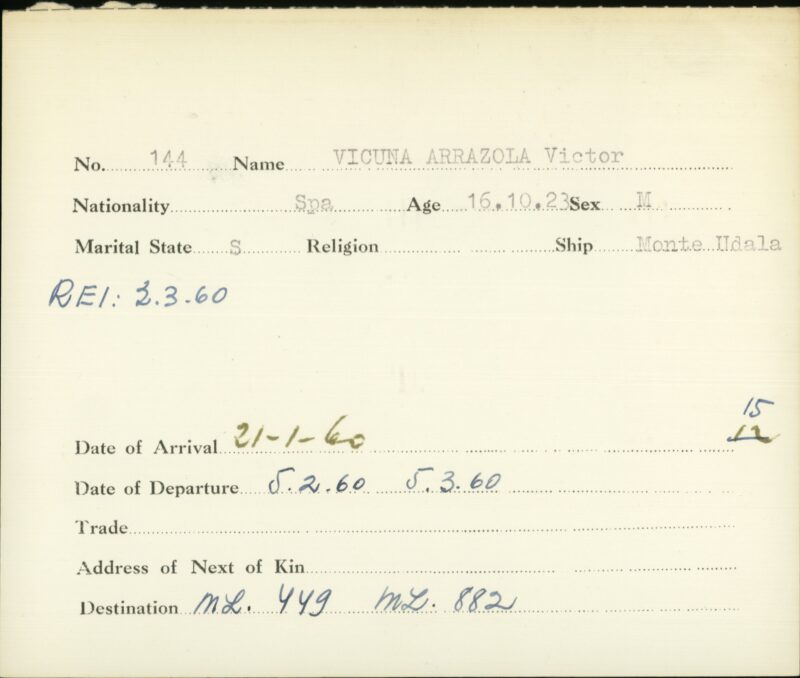 No. 144 Name VICUNA ARRAZOLA Victor
Nationality Spa Age 16.10.23 Sex M
Marital State S Religion Ship Monte Udala
REI: 2.3.60
15
Date of Arrival 21-1-60 12
Date of Departure 5.2.60 5.3.60
Trade
Address of Next of Kin
Destination ML. 449 ML. 882